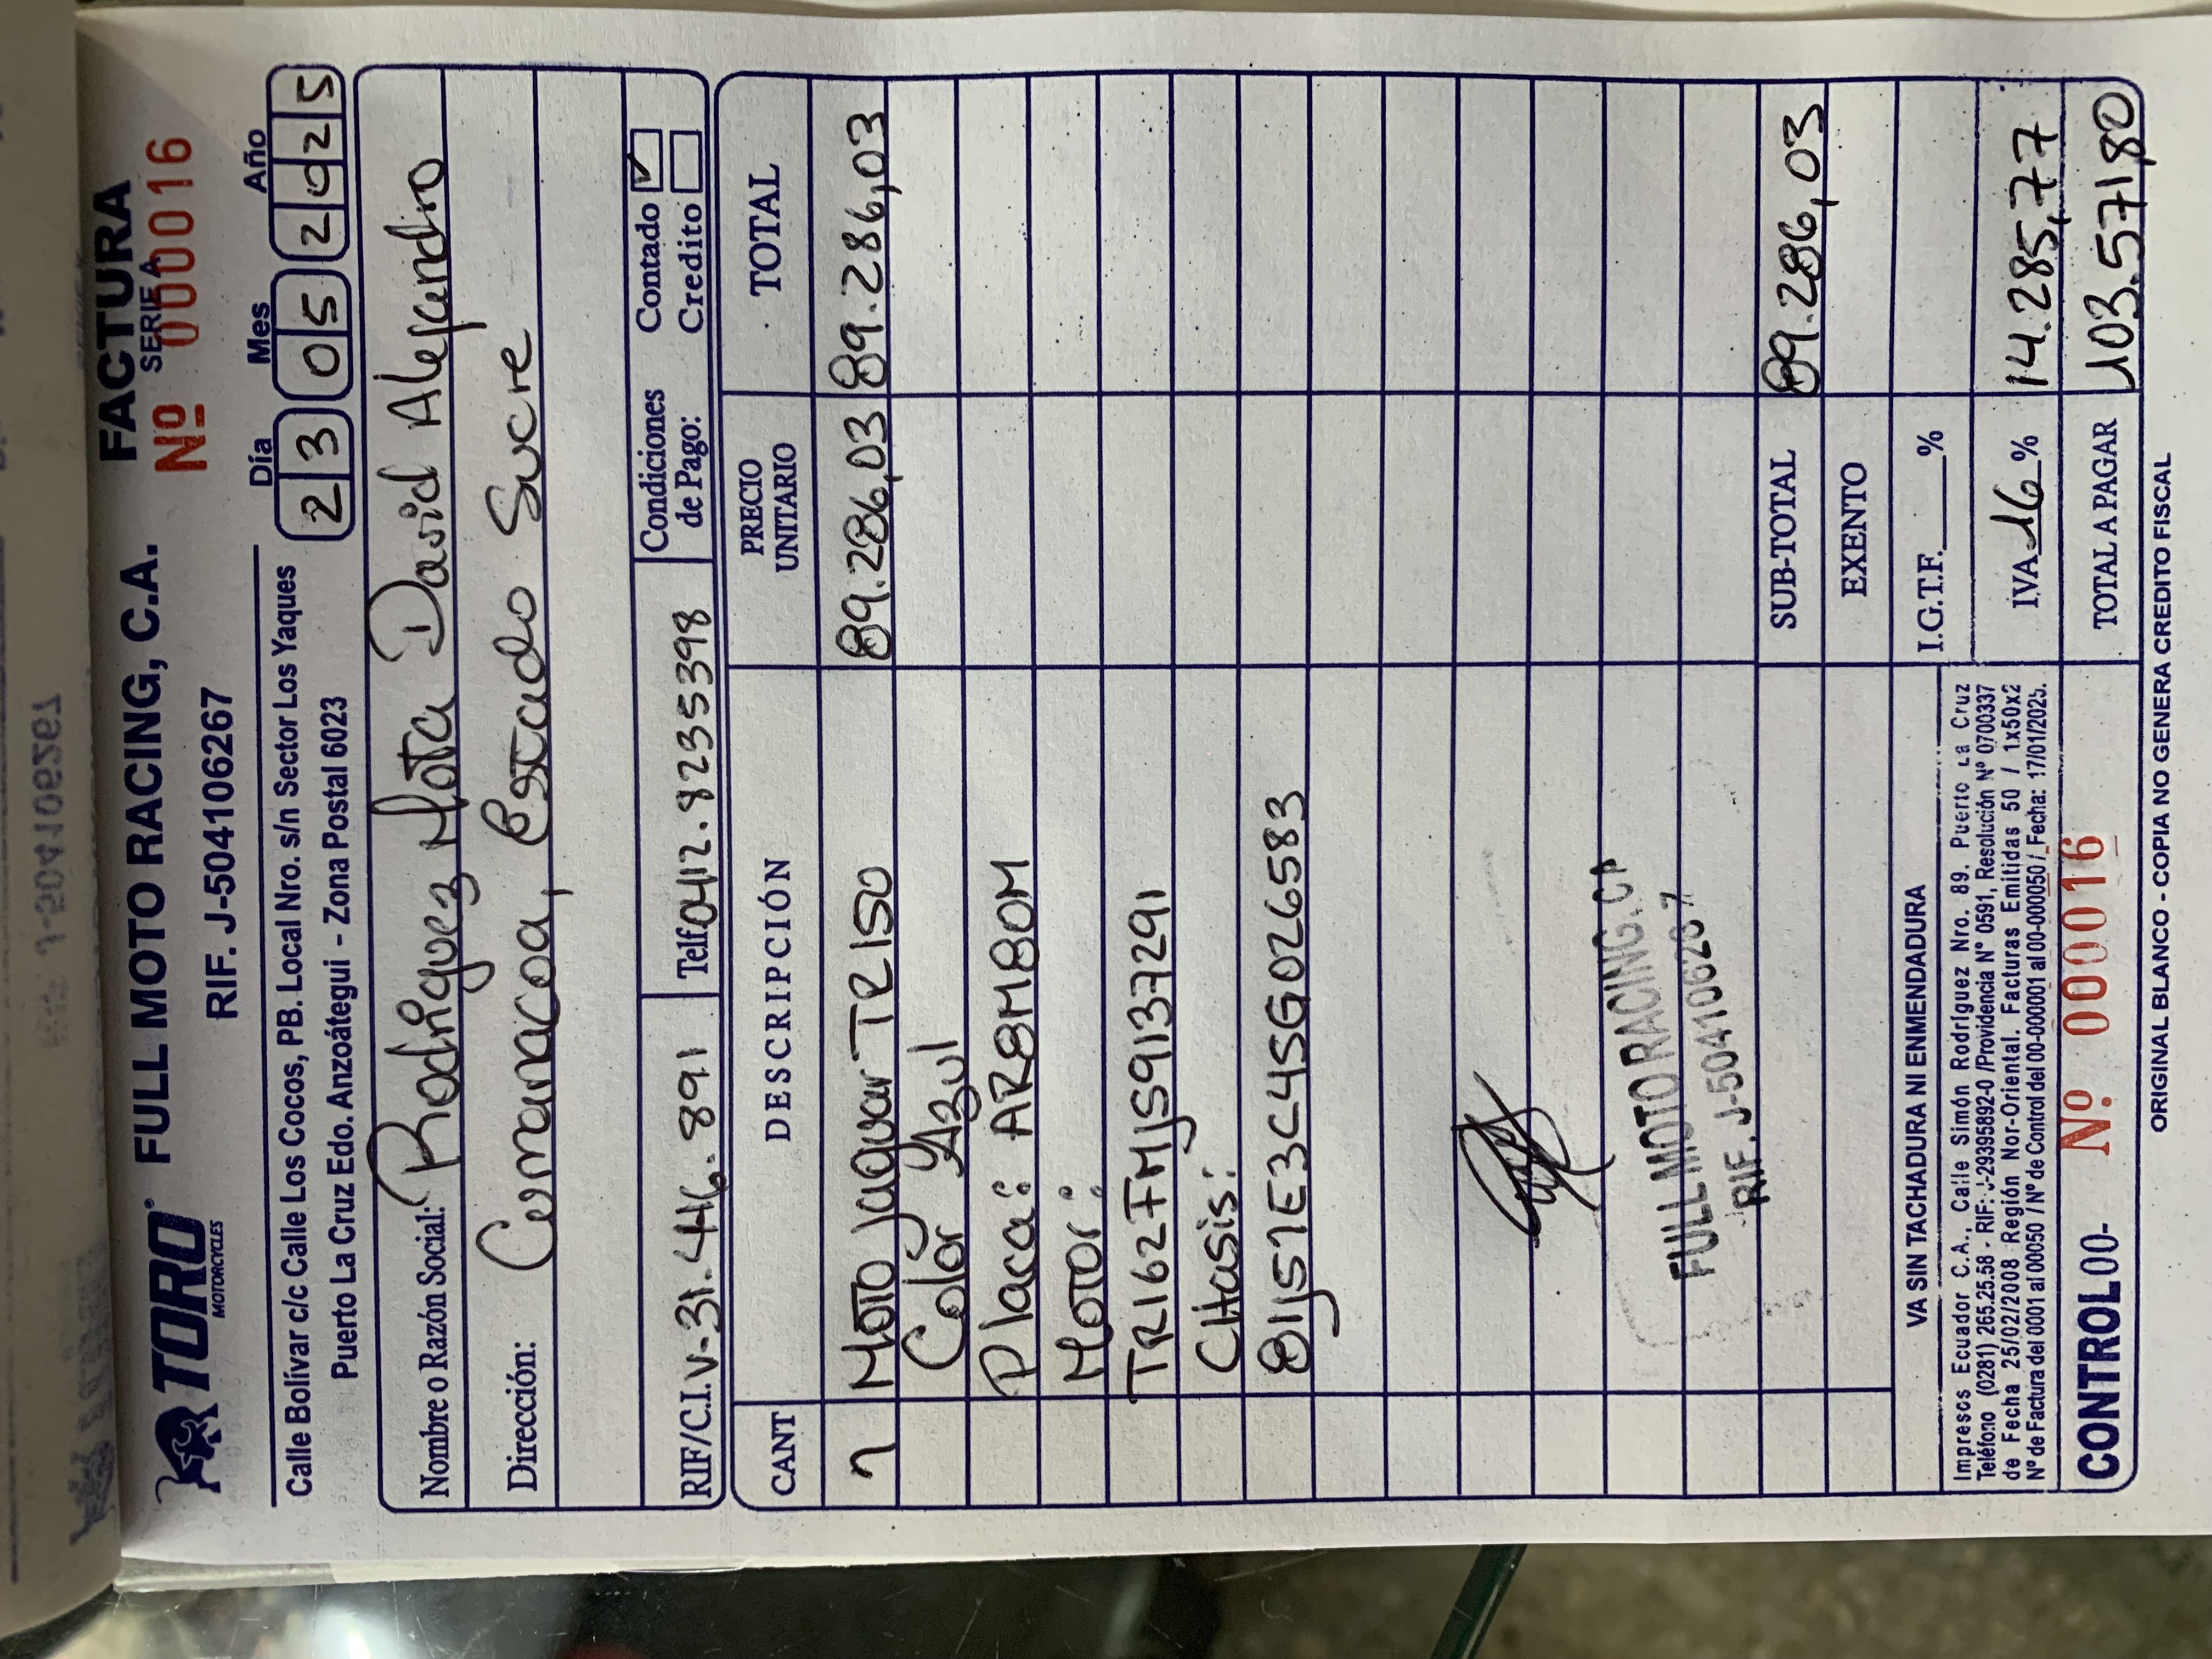 TORO
MOTORCYCLES
FULL MOTO RACING, C.A.
RIF. J-504106267
FACTURA
SERIE A
Nº 000016
Calle Bolívar c/c Calle Los Cocos, PB. Local Nro. s/n Sector Los Yaques
Puerto La Cruz Edo. Anzoátegui - Zona Postal 6023
Día Mes Año
23 05 2025
Nombre o Razón Social: Rodriguez Mota David Alejandro
Dirección: Cumanacoa, Estado Sucre
RIF/C.I. V-31.446.891 Telf 0412.8235398 Condiciones de Pago: Contado ✓ Credito
CANT DESCRIPCIÓN PRECIO UNITARIO TOTAL
1 Moto Jaguar TR150 89.286,03 89.286,03
Color Azul
Placa: AR8M80M
Motor:
TR162FMJS9137291
CHasis:
FULL MOTO RACING.CA
RIF. J-504106267
SUB-TOTAL 89.286,03
EXENTO
I.G.T.F. %
IVA 16 % 14.285,77
TOTAL A PAGAR 103.571,80
VA SIN TACHADURA NI ENMENDADURA
Impresos Ecuador C.A., Calle Simón Rodríguez Nro. 89. Puerto La Cruz
Teléfono (0281) 265.25.58 - RIF: J-29395892-0 /Providencia N° 0591, Resolución Nº 0700337
de Fecha 25/02/2008 Región Nor-Oriental. Facturas Emitidas 50 / 1x50x2
Nº de Factura del 0001 al 00050 / Nº de Control del 00-000001 al 00-000050 / Fecha: 17/01/2025.
CONTROL 00- Nº 000016
ORIGINAL BLANCO - COPIA NO GENERA CREDITO FISCAL